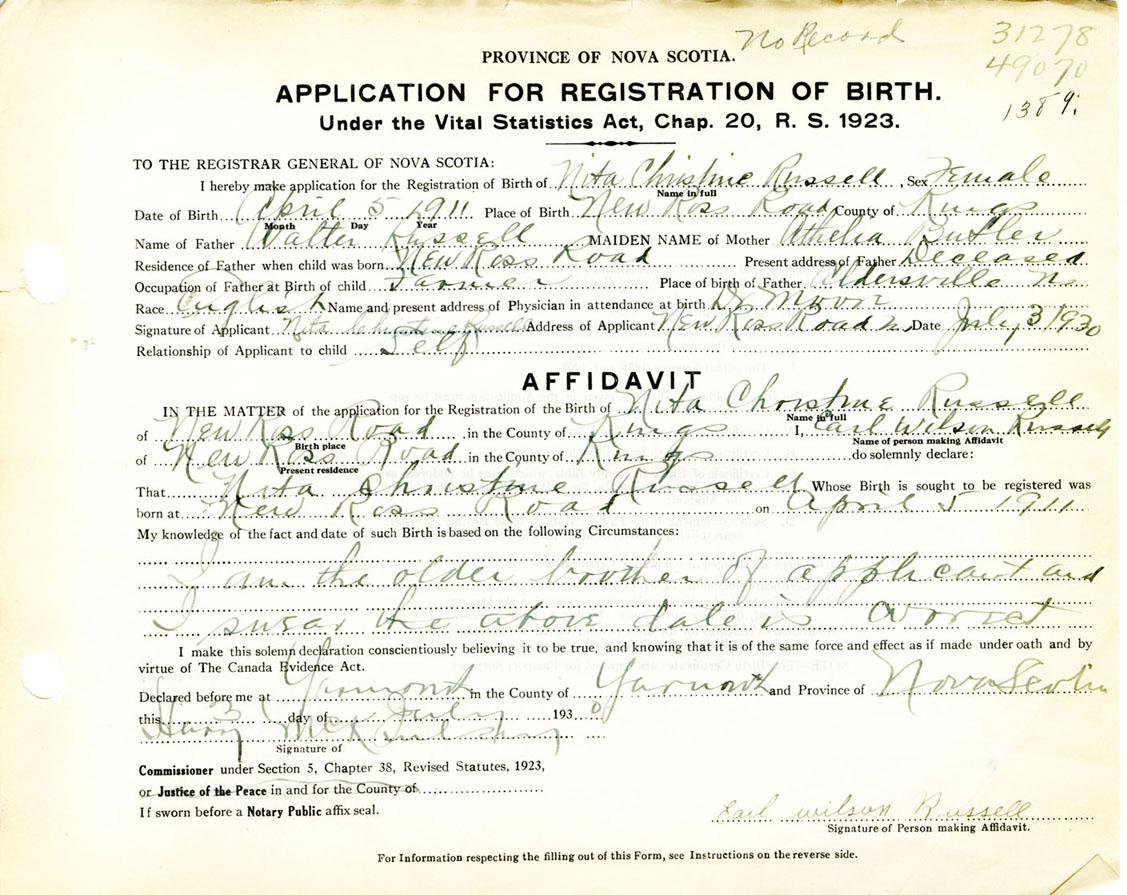 No Record
31278
PROVINCE OF NOVA SCOTIA.
49070
APPLICATION FOR REGISTRATION OF BIRTH.
1389.
Under the Vital Statistics Act, Chap. 20, R. S. 1923.
TO THE REGISTRAR GENERAL OF NOVA SCOTIA:
I hereby make application for the Registration of Birth of Nita Christine Russell, Sex Female
Name in full
Date of Birth April 5 1911 Place of Birth New Ross Road County of Kings
Month Day Year
Name of Father Walter Russell MAIDEN NAME of Mother Athelia Butler
Residence of Father when child was born New Ross Road Present address of Father Deceased
Occupation of Father at Birth of child Farmer Place of birth of Father Aldersville Ns
Race English Name and present address of Physician in attendance at birth Dr Moor
Signature of Applicant Nita Christine Russell Address of Applicant New Ross Road Ns Date July 3 1930
Relationship of Applicant to child Self
AFFIDAVIT
IN THE MATTER of the application for the Registration of the Birth of Nita Christine Russell
Name in full
of New Ross Road in the County of Kings I, Earl Wilson Russell
Birth place Name of person making Affidavit
of New Ross Road in the County of Kings do solemnly declare:
Present residence
That Nita Christine Russell Whose Birth is sought to be registered was
born at New Ross Road on April 5 1911
My knowledge of the fact and date of such Birth is based on the following Circumstances:
I am the older brother of applicant and
I swear the above date is correct
I make this solemn declaration conscientiously believing it to be true, and knowing that it is of the same force and effect as if made under oath and by
virtue of The Canada Evidence Act.
Declared before me at Yarmouth in the County of Yarmouth and Province of Nova Scotia
this 3 day of July 1930
Harry
Signature of
Commissioner under Section 5, Chapter 38, Revised Statutes, 1923,
or Justice of the Peace in and for the County of
If sworn before a Notary Public affix seal.
Earl Wilson Russell
Signature of Person making Affidavit.
For Information respecting the filling out of this Form, see Instructions on the reverse side.